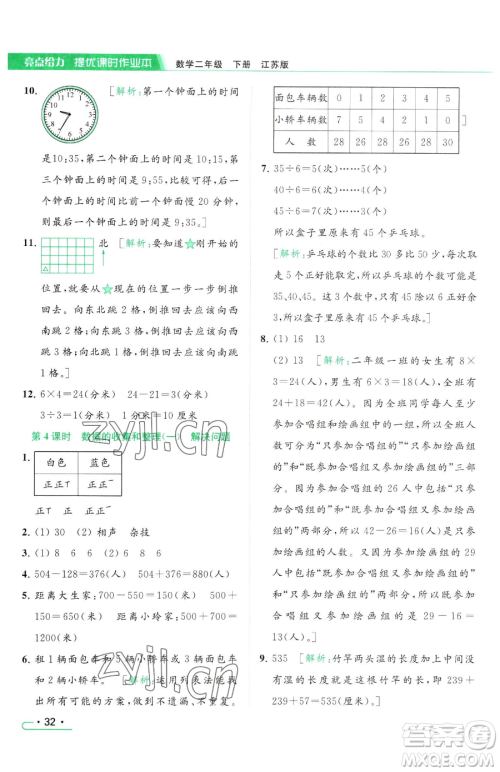 亮点给力 提优课时作业本 数学二年级 下册 江苏版
10. [解析:第一个钟面上的时间
是 10:35,第二个钟面上的时间是 10:15,第
三个钟面上的时间是 9:55。从中可以发现
规律:下一个钟面比上一个钟面慢 20 分钟,
因此,最后一个钟面上的时间是 9:35。]
11. 北 [解析:要知道★刚开始的
位置,就要从★现在的位置一步一步倒推
回去。向东北跳 2 格,倒推回去应该向西
南跳 2 格;向北跳 1 格,倒推回去应该向南
跳 1 格;向西北跳 1 格,倒推回去应该向东
南跳 1 格。]
12. 6×4=24(分米) 24-21=3(分米)
3÷3=1(分米) 1分米=10厘米
第 4 课时 数据的收集和整理(一) 解决问题
1. 白色 蓝色
正正 正正
2. (1) 30 (2) 相声 杂技
3. (1) 8 6 9 (2) 6 8 6
4. 504-128=376(人) 504-376=128(人)
5. 距离大生家:700-550=150(米) 500+
150=650(米) 距离小军家:700-650=
50(米)
6. 租 1 辆面包车和 5 辆小轿车或 4 辆面包车和
1 辆小轿车。 [解析:运用列表法可以找出
所有可能的方案,有规律地列表,不遗漏、不重复。
面包车辆数 0 1 2 3 4 5
小轿车辆数 7 5 4 2 1 0
人 数 28 26 28 26 28 30
]
7. 35÷6=5(次)……5(个)
40÷6=6(次)……4(个)
45÷6=7(次)……3(个)
所以盒子里有 45 个乒乓球。
[解析:乒乓球的个数比 30 多比 50 少,每
次数 5 个,正好数完,所以乒乓球的个数可能是
35、40、45。这三个数中只有 45 除以 6 余
3,所以盒子里有 45 个乒乓球。]
8. (1) 16 13
(2) 13 [解析:二年级一班的女生有 8×
3=24(人),男生有 6×3=18(人),一共有
24+18=42(人)。参加绘画组的有 42-
26=16(人)。所有参加合唱组和绘画组的
人可以分为“只参加合唱组的”“只参加绘画
组的”和“既参加合唱组又参加绘画组的”三
部分。参加合唱组的 26 人中包含“只参加
合唱组的”和“既参加合唱组又参加绘画组
的”两部分,所以,42-26=16(人)就是只参
加绘画组的人数。又因为参加绘画组的 29
人中包含“只参加绘画组的”和“既参加合
唱组又参加绘画组的”两部分,所以“既参
加合唱组又参加绘画组的”有 29-16=
13(人)。]
9. 535 [解析:竹竿两头湿的长度加上中间
没湿的长度就是竹竿的长度,也就是 239+
239+57=535(厘米)。]
· 32 ·
zyjl.cn
zyjl.cn